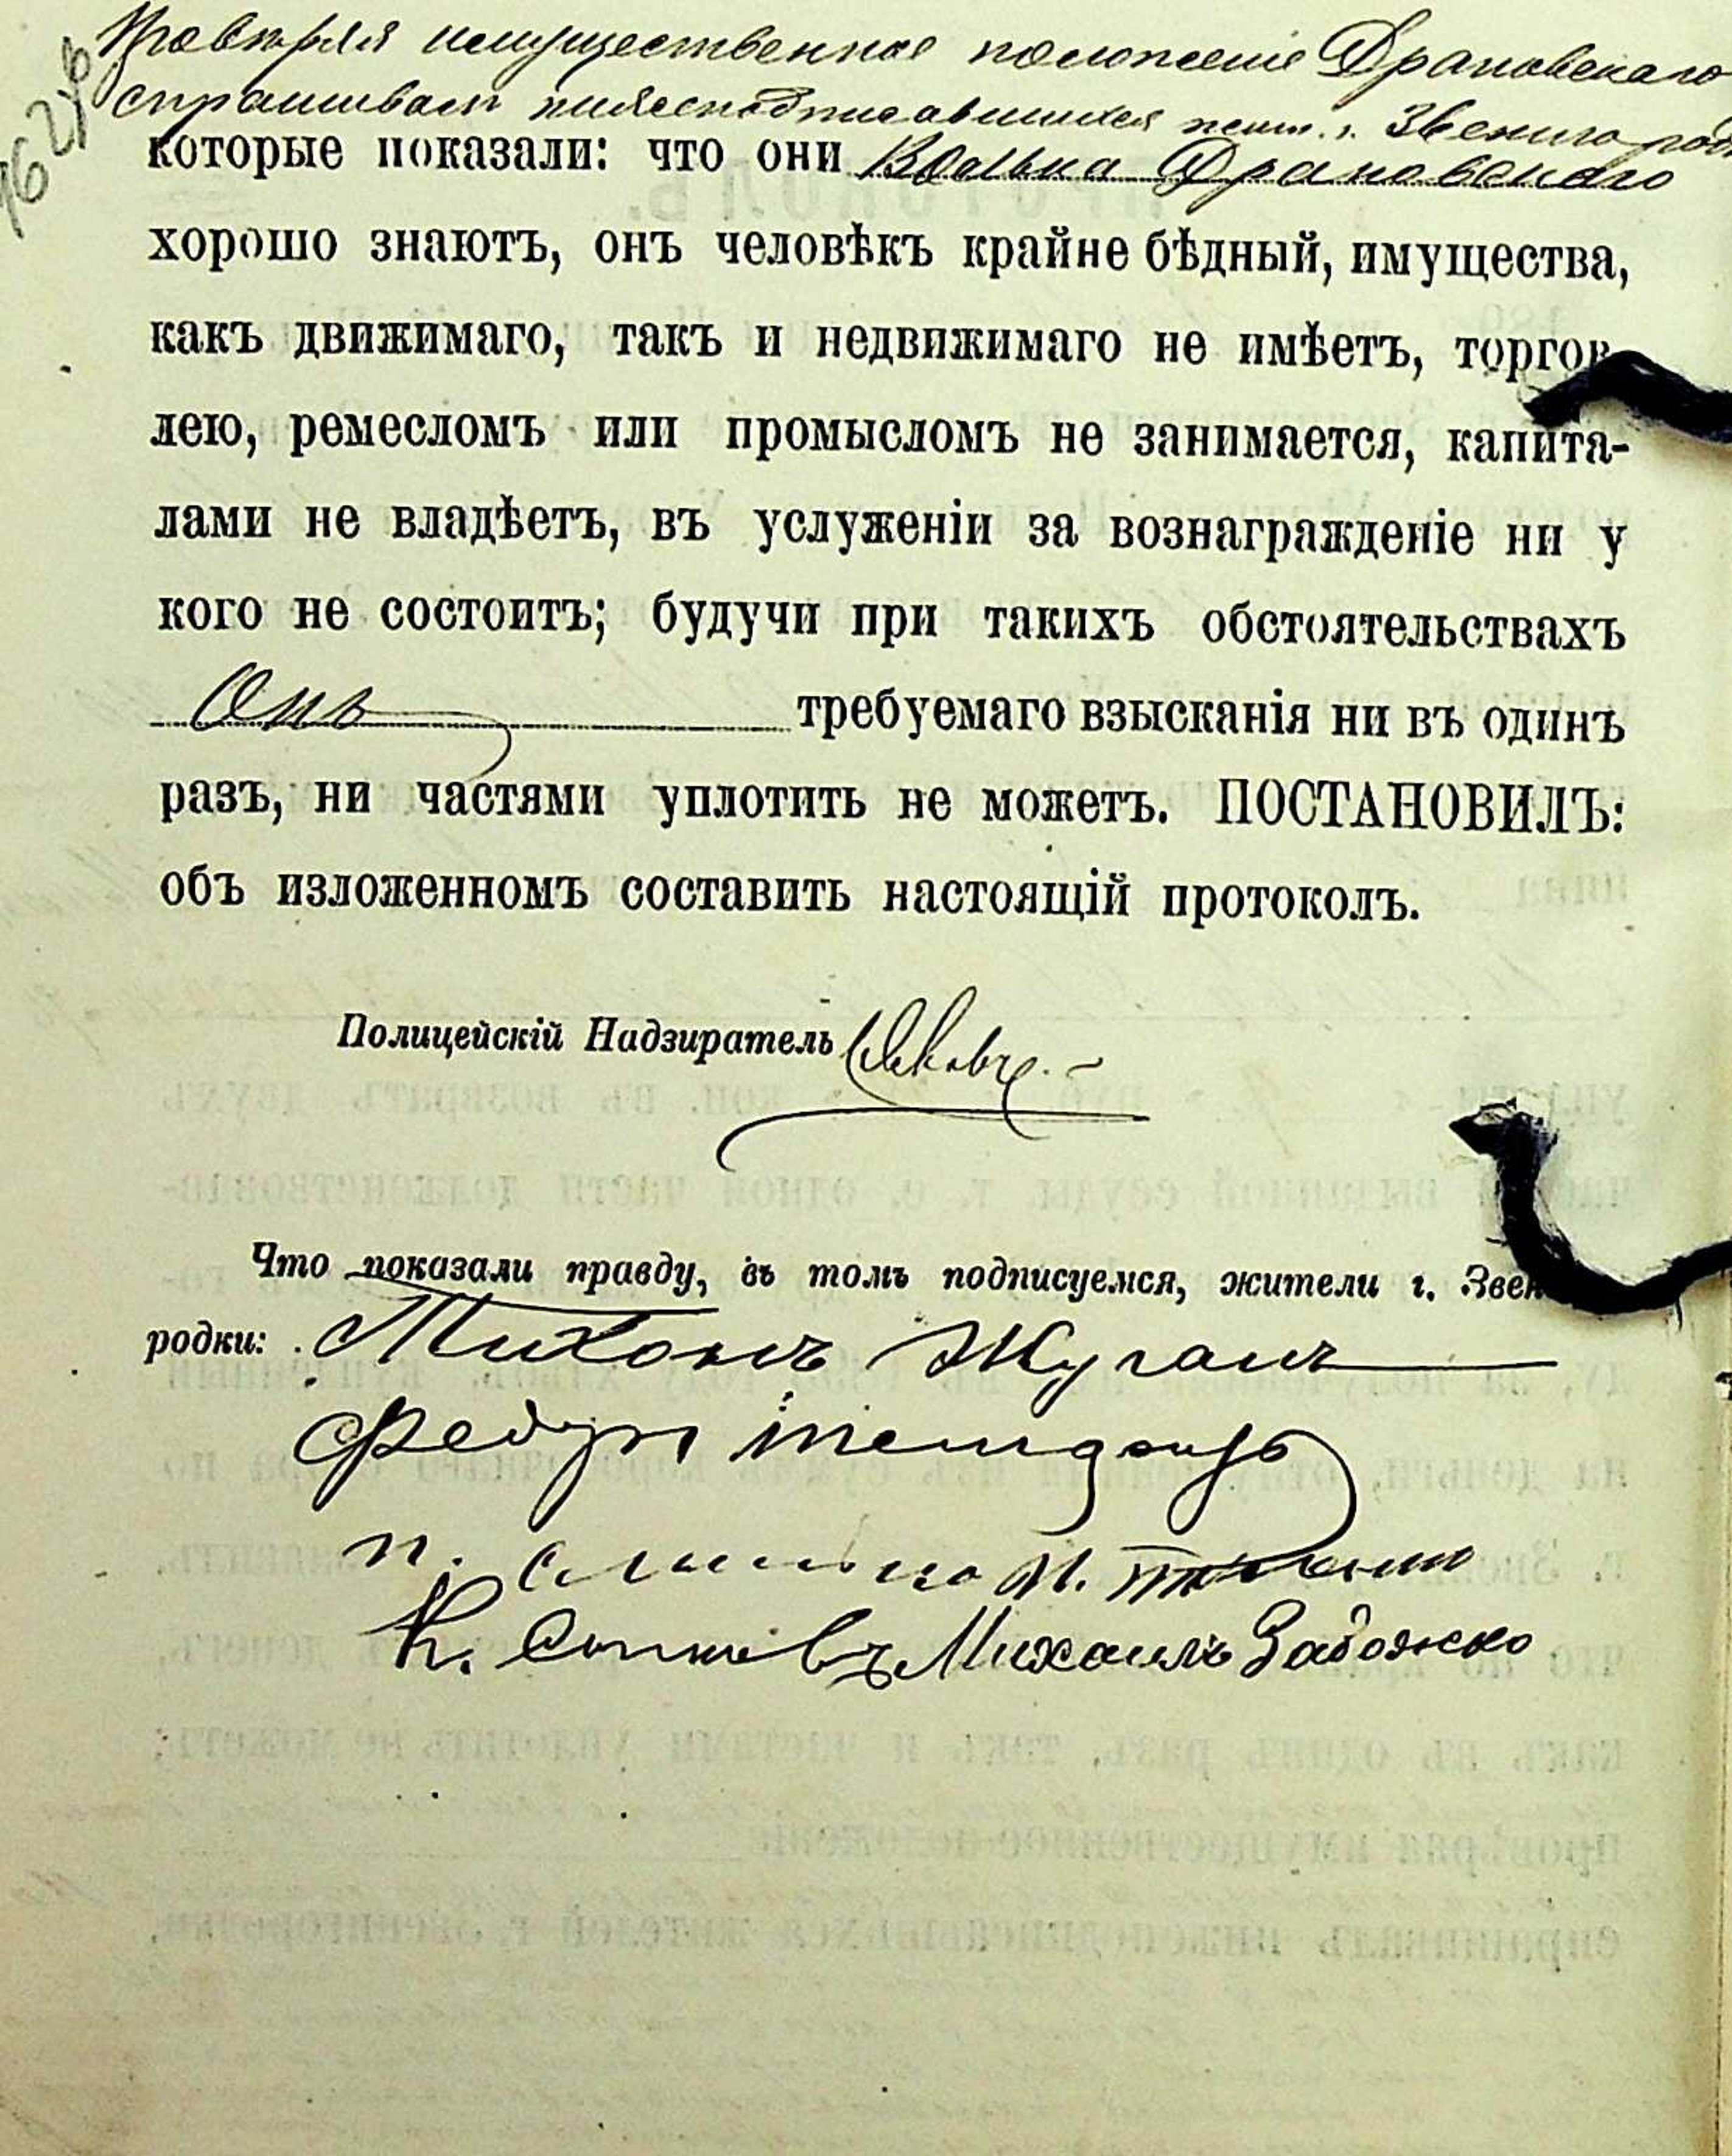 Провѣряя имущественное положеніе Драновскаго
спрашивалъ нижеподписавшихся жит. г. Звенигород
которые показали: что они Драновскаго
хорошо знаютъ, онъ человѣкъ крайне бѣдный, имущества,
какъ движимаго, такъ и недвижимаго не имѣетъ, торгов
лею, ремесломъ или промысломъ не занимается, капита-
лами не владѣетъ, въ услуженіи за вознагражденіе ни у
кого не состоитъ; будучи при такихъ обстоятельствахъ
Онъ требуемаго взысканія ни въ одинъ
разъ, ни частями уплотить не можетъ. ПОСТАНОВИЛЪ:
объ изложенномъ составить настоящій протоколъ.
Полицейскій Надзиратель
Что показали правду, въ томъ подписуемся, жители г. Звен
родки: Тихонъ Жуганъ
Федоръ
п. М.
К. Михаилъ Забожко